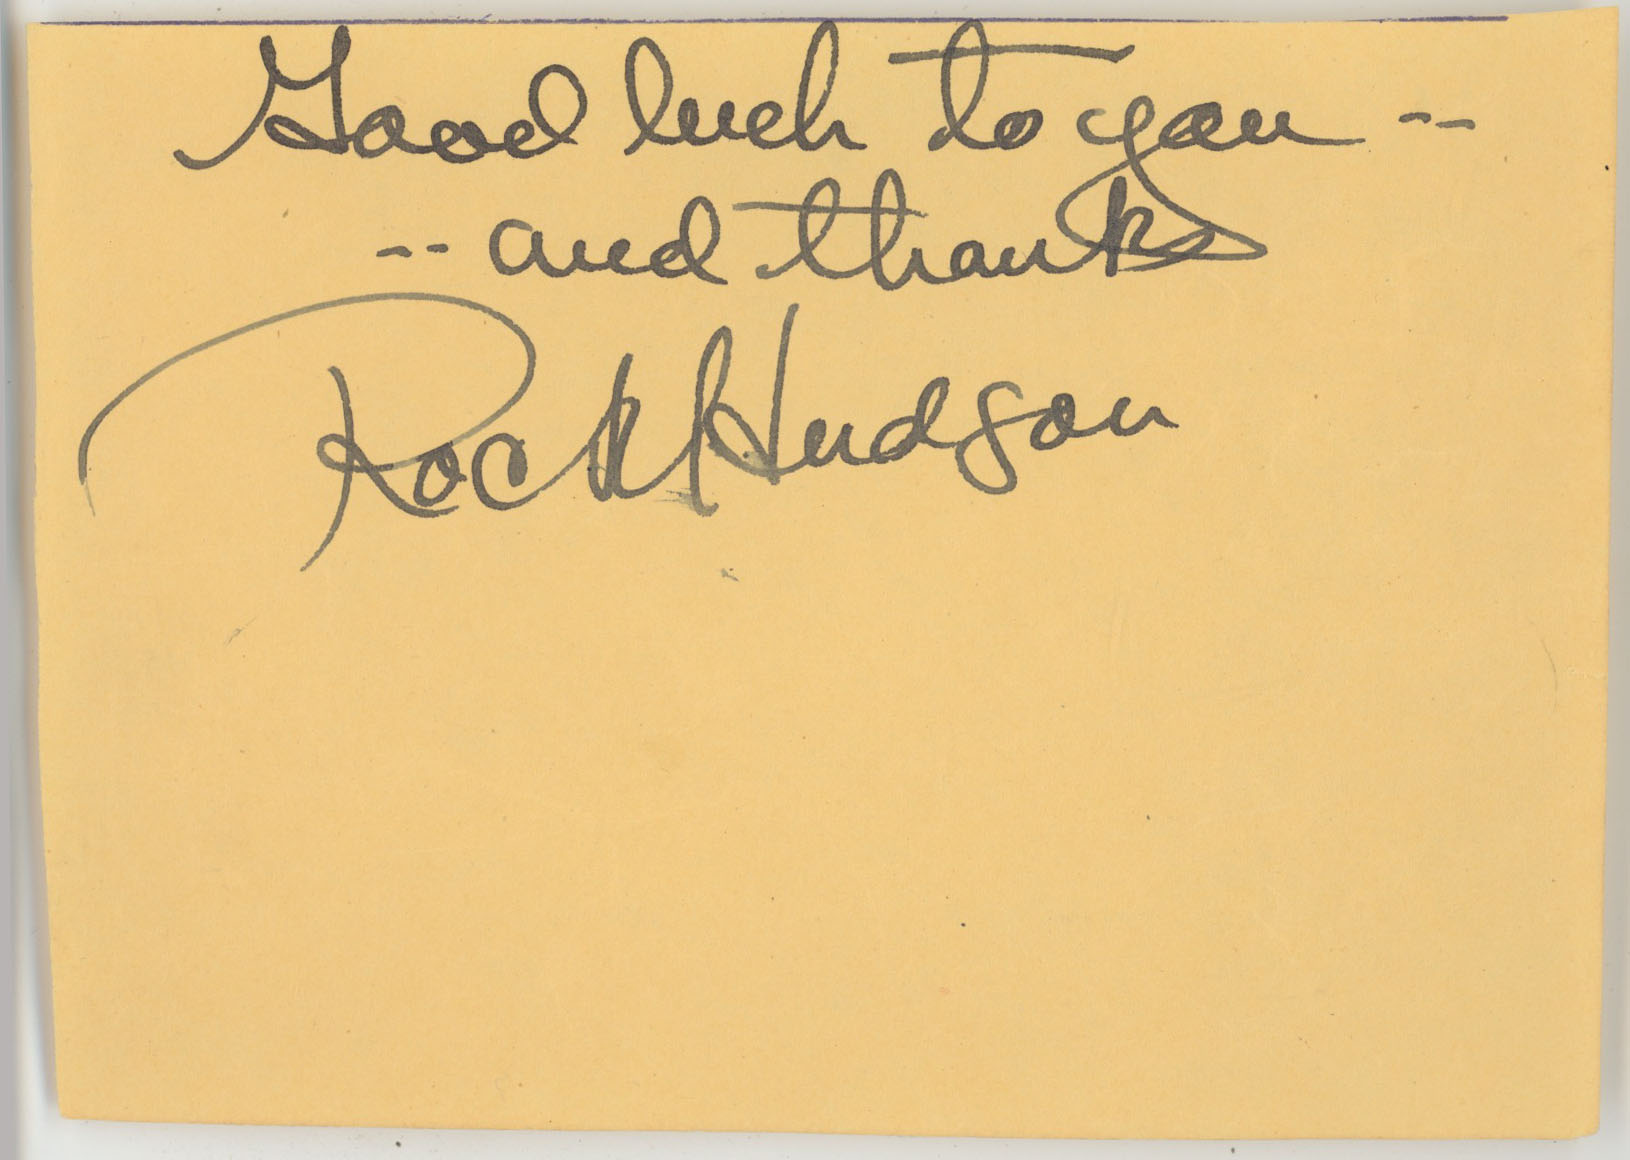 Good luck to you --
-- and thanks
Rock Hudson